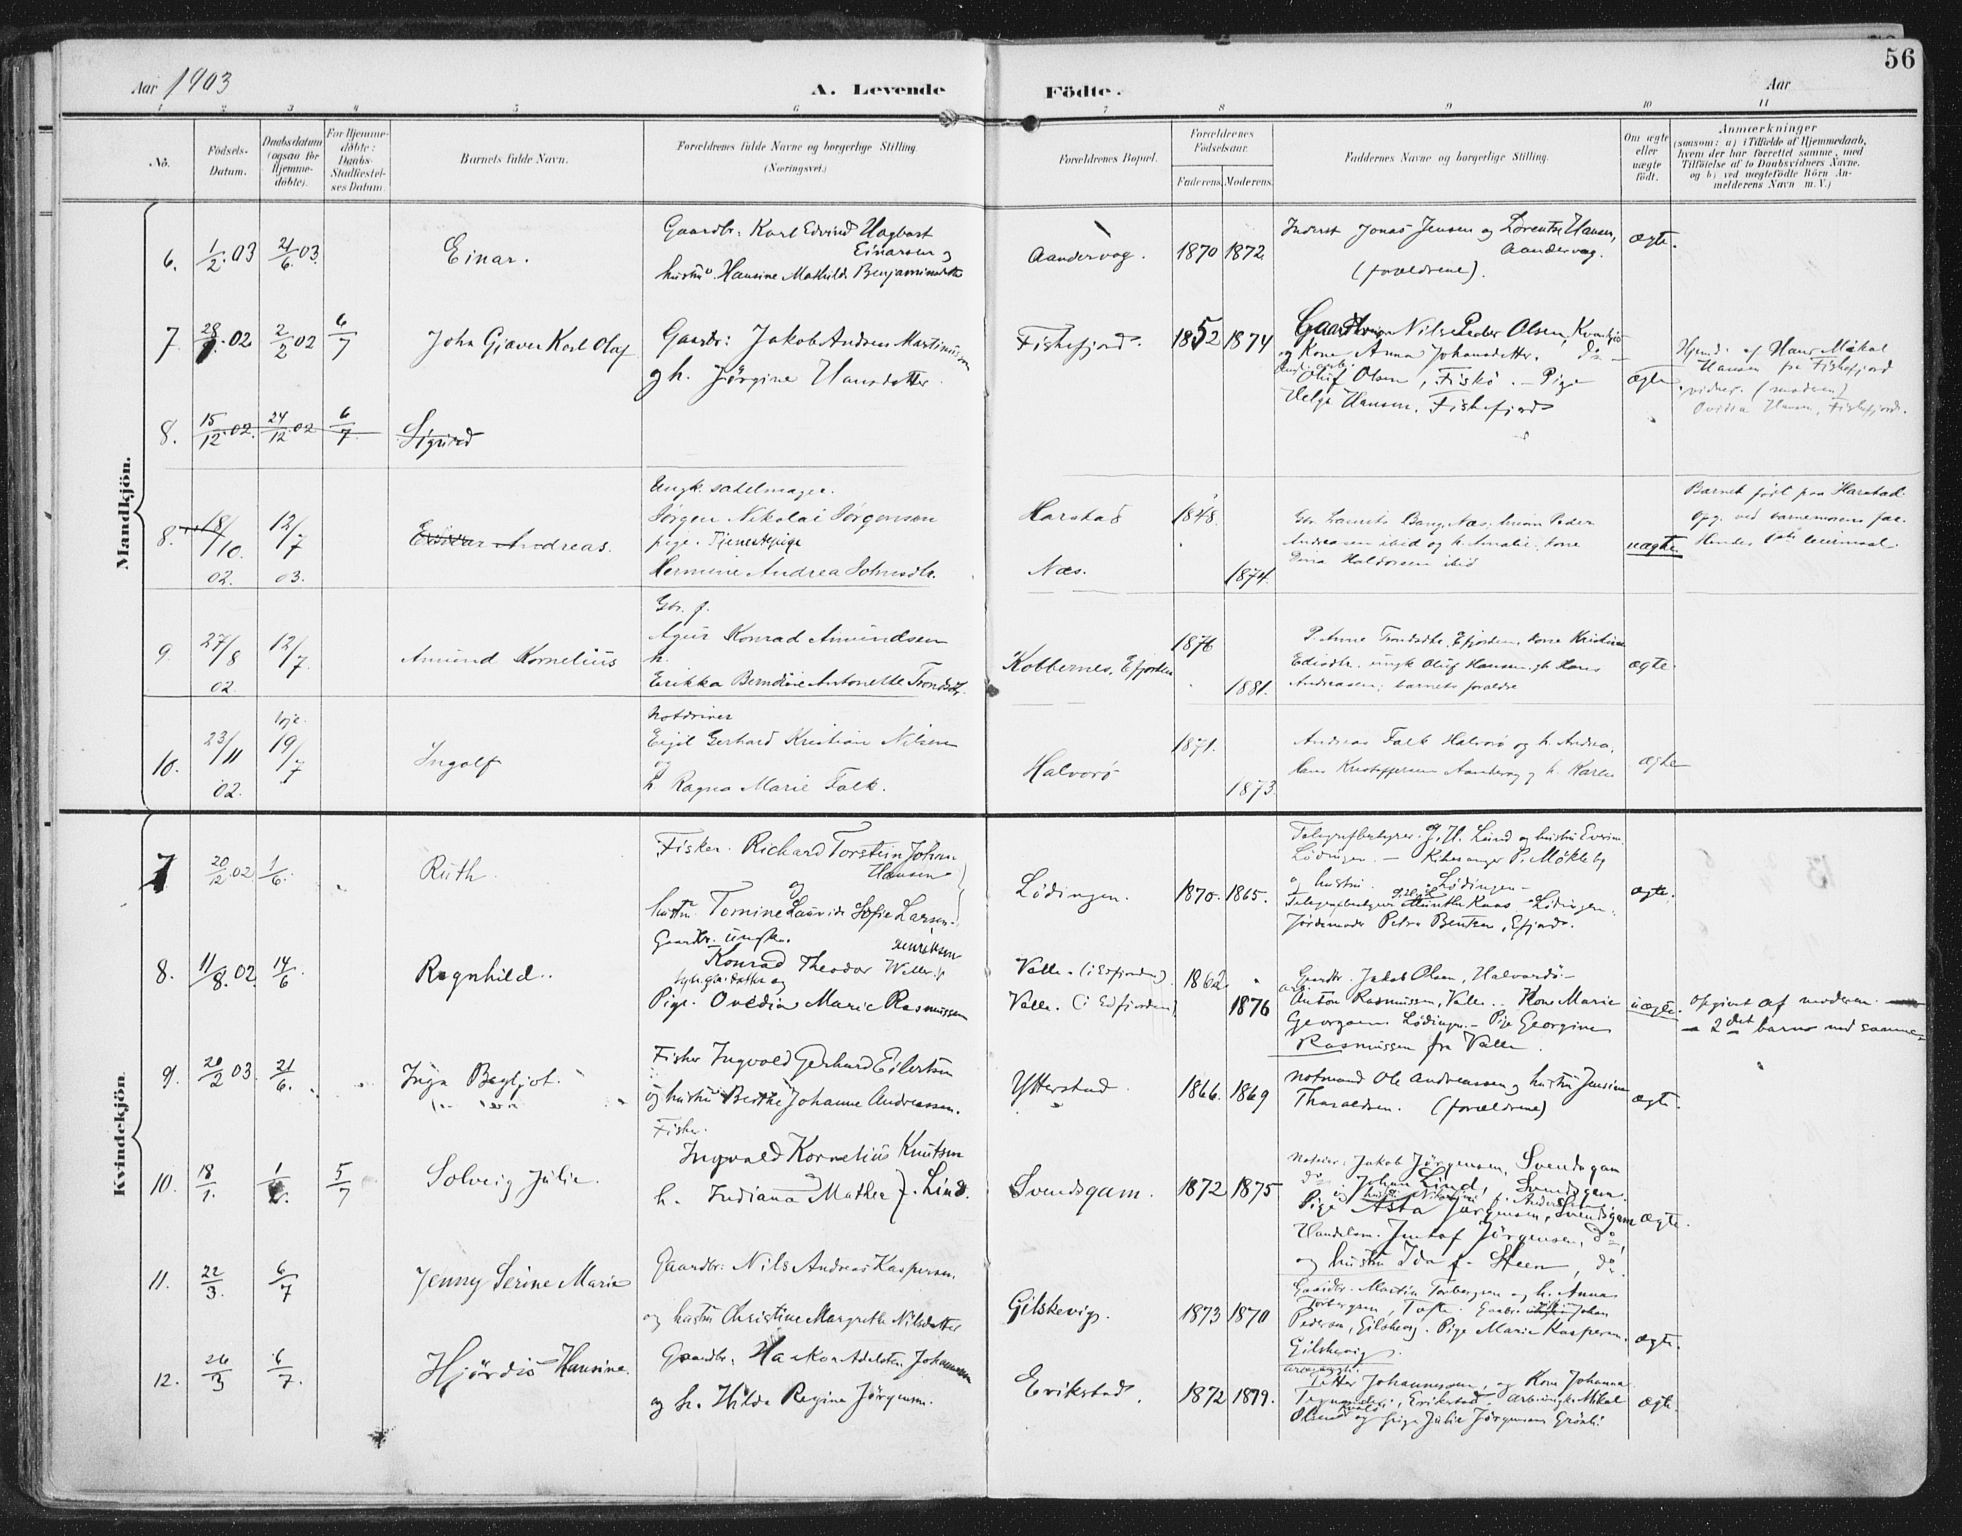 56
Aar 1903
A. Levende Födte.
Aar
1 2 3 4 5 6 7 8 9 10 11
No.
Födsels-
Datum.
Daabsdatum
(ogsaa for
Hjemme-
döbte).
For Hjemme-
döbte:
Daabs-
Stadfæstel-
ses Datum.
Barnets fulde Navn.
Forældrenes fulde Navne og borgerlige Stilling
(Næringsvei.)
Forældrenes Bopæl.
Forældrenes
Födselsaar.
Faderens. Moderens.
Faddernes Navne og borgerlige Stilling.
Om ægte
eller
uægte
födt.
Anmærkninger
(saasom: a) i Tilfælde af Hjemmedaab,
hvem der har forrettet samme, med
Tilföielse af to Daabsvidners Navne.
og b) ved uægtefödte Börn An-
melderens Navn m. V.)
Mandkjön.
6. 1/2 03 21/6 03. Einar.
Gaardbr: Karl Edvind Hagbart
Einarsen og
hustru Hansine Mathilde Benjaminsdtr
Aandervag. 1870 1872
Inderst Jonas Jensen og Lorentze Hansen,
Aandervag.
(forældrene).
ægte.
7. 28/1 02 2/2 02 6/7 John Gjæver Karl Olaf
Gaardbr: Jakob Andreas Martinussen
og h. Jörgine Hansdatter.
Fiskefjord. 1852 1874
Nils Peder Olsen,
og Kone Anna Johansdatter. do
Oluf Olsen, Fiskö. - Pige
Helga Hansen, Fiskefjord
ægte
Hjmd. af Hans Mikal
Hansen fra Fiskefjord
vidner. (moderen)
Hansen, Fiskefjord.
8. 15/12 02. 24/12 02 6/7 Sigurd
8. 18/10 02. 12/7 03. Andreas.
Ungk. sadelmager.
Jørgen Nikolai Jørgensen
pige. Tjenestepige
Hermine Andrea Johnsdtr.
Harstad 1848.
Næs. 1874.
Gbr. Laurits Bang, Næs; Peder
Andreasen ibid og h. Amalie; kone
Haldorsen ibid
uægte
Barnet født paa Harstad.
Opg. ved barnemoren
Hendes 1ste leiermaal.
9. 27/8 02 12/7. Amund Kornelius
Gbr. f.
Konrad Amundsen
h.
Erikka Berndine Antonette Trondsdtr.
Kobbernes, Efjorden 1876
1881.
P. Anne Trondsdtr, Efjorden, kone Kristine
ungk Oluf Hansen, gb Hans
Andreasen; barnets forældre
ægte
10. 23/11 02. 19/7 Ingolf
Notdriver
Eigil Gerhard Kristian Nilsen
og
h Ragna Marie Falk.
Halvorø 1871.
1873.
Andreas Falk Halvorø og h. Andrea,
Hans Kristoffersen Aandervag og h. Karen
ægte
Kvindekjön.
7. 20/12 02 1/6. Ruth.
Fisker. Richard Torstein Johan
Hansen
og
hustru Tomine Lauvide Sofie Larsen.
Lödingen. 1870. 1865.
Telegrafbestyrer J. H. Lund og hustru
Lödingen. - Kirkesanger P. Möklebÿ
og hustru. Lödingen -
Telegrafbestyrer Munthe Kaas - Lödingen.
Jordemoder Petra Bentzen, Efjord.
ægte.
8. 11/8. 02. 14/6. Ragnhild.
Gaardbr. ungk.
Konrad Theodor Henriksen
og
Pige. Ovedia Marie Rasmussen
Valle. (i Edfjorden) 1862
Valle. (i Edfjorden) 1876
Gaardbr. Jakob Olsen, Halvardö -
Anton Rasmussen, Valle.. Kone Marie
Georgsen Lödingen. - Pige Georgine
Rasmussen fra Valle.
uægte.
opgivet af moderen.
- 2det barn med samme
9. 20/2 03. 21/6. Inga Bergljot.
Fisker Ingvald Gerhard Eilertsen
og hustru Berthe Johanne Andreassen.
Ytterstad. 1866. 1869
Notmand Ole Andreassen og hustru Jensine
Tharaldsen. (forældrene)
ægte.
10. 18/1. 1/2. 5/7 Solveig Julie.
Fisker.
Ingvald Kornelius Knutsen
h. Indiana Mathea f. Lind.
Svendsgam. 1872 1875
Jakob Jörgensen, Svendsgam
do. Johan Lind, Svendsgam.
Pige Asta Jörgensen, Svendsgam
Handelsm. Gustaf Jörgensen, do,
og hustru Ida f. Steen, do.
ægte.
11. 22/3. 6/7 Jenny Serine Marie
Gaardbr: Nils Andreas Kaspersen.
og hustru Christine Margrethe Nilsdatter
Gilskevig. 1873 1870
Gaardbr. Martin Torbergsen og h. Anna
Torbergsen, Tofte. Gaardbr. Johan
Pedersen, Gilskevig. Pige Marie Kaspersen.
Gilskevig.
ægte.
12. 26/3 6/7. Hjördis Hansine.
Gaardbr: Haakon Adelsten Johannessen
og h. Hilda Regine Jörgensen.
Erikstad. 1872 1879.
Petter Johannessen, og Kone Johanna
Erikstad. Mikal
Olsen og pige Julie Jörgensen
ægte.